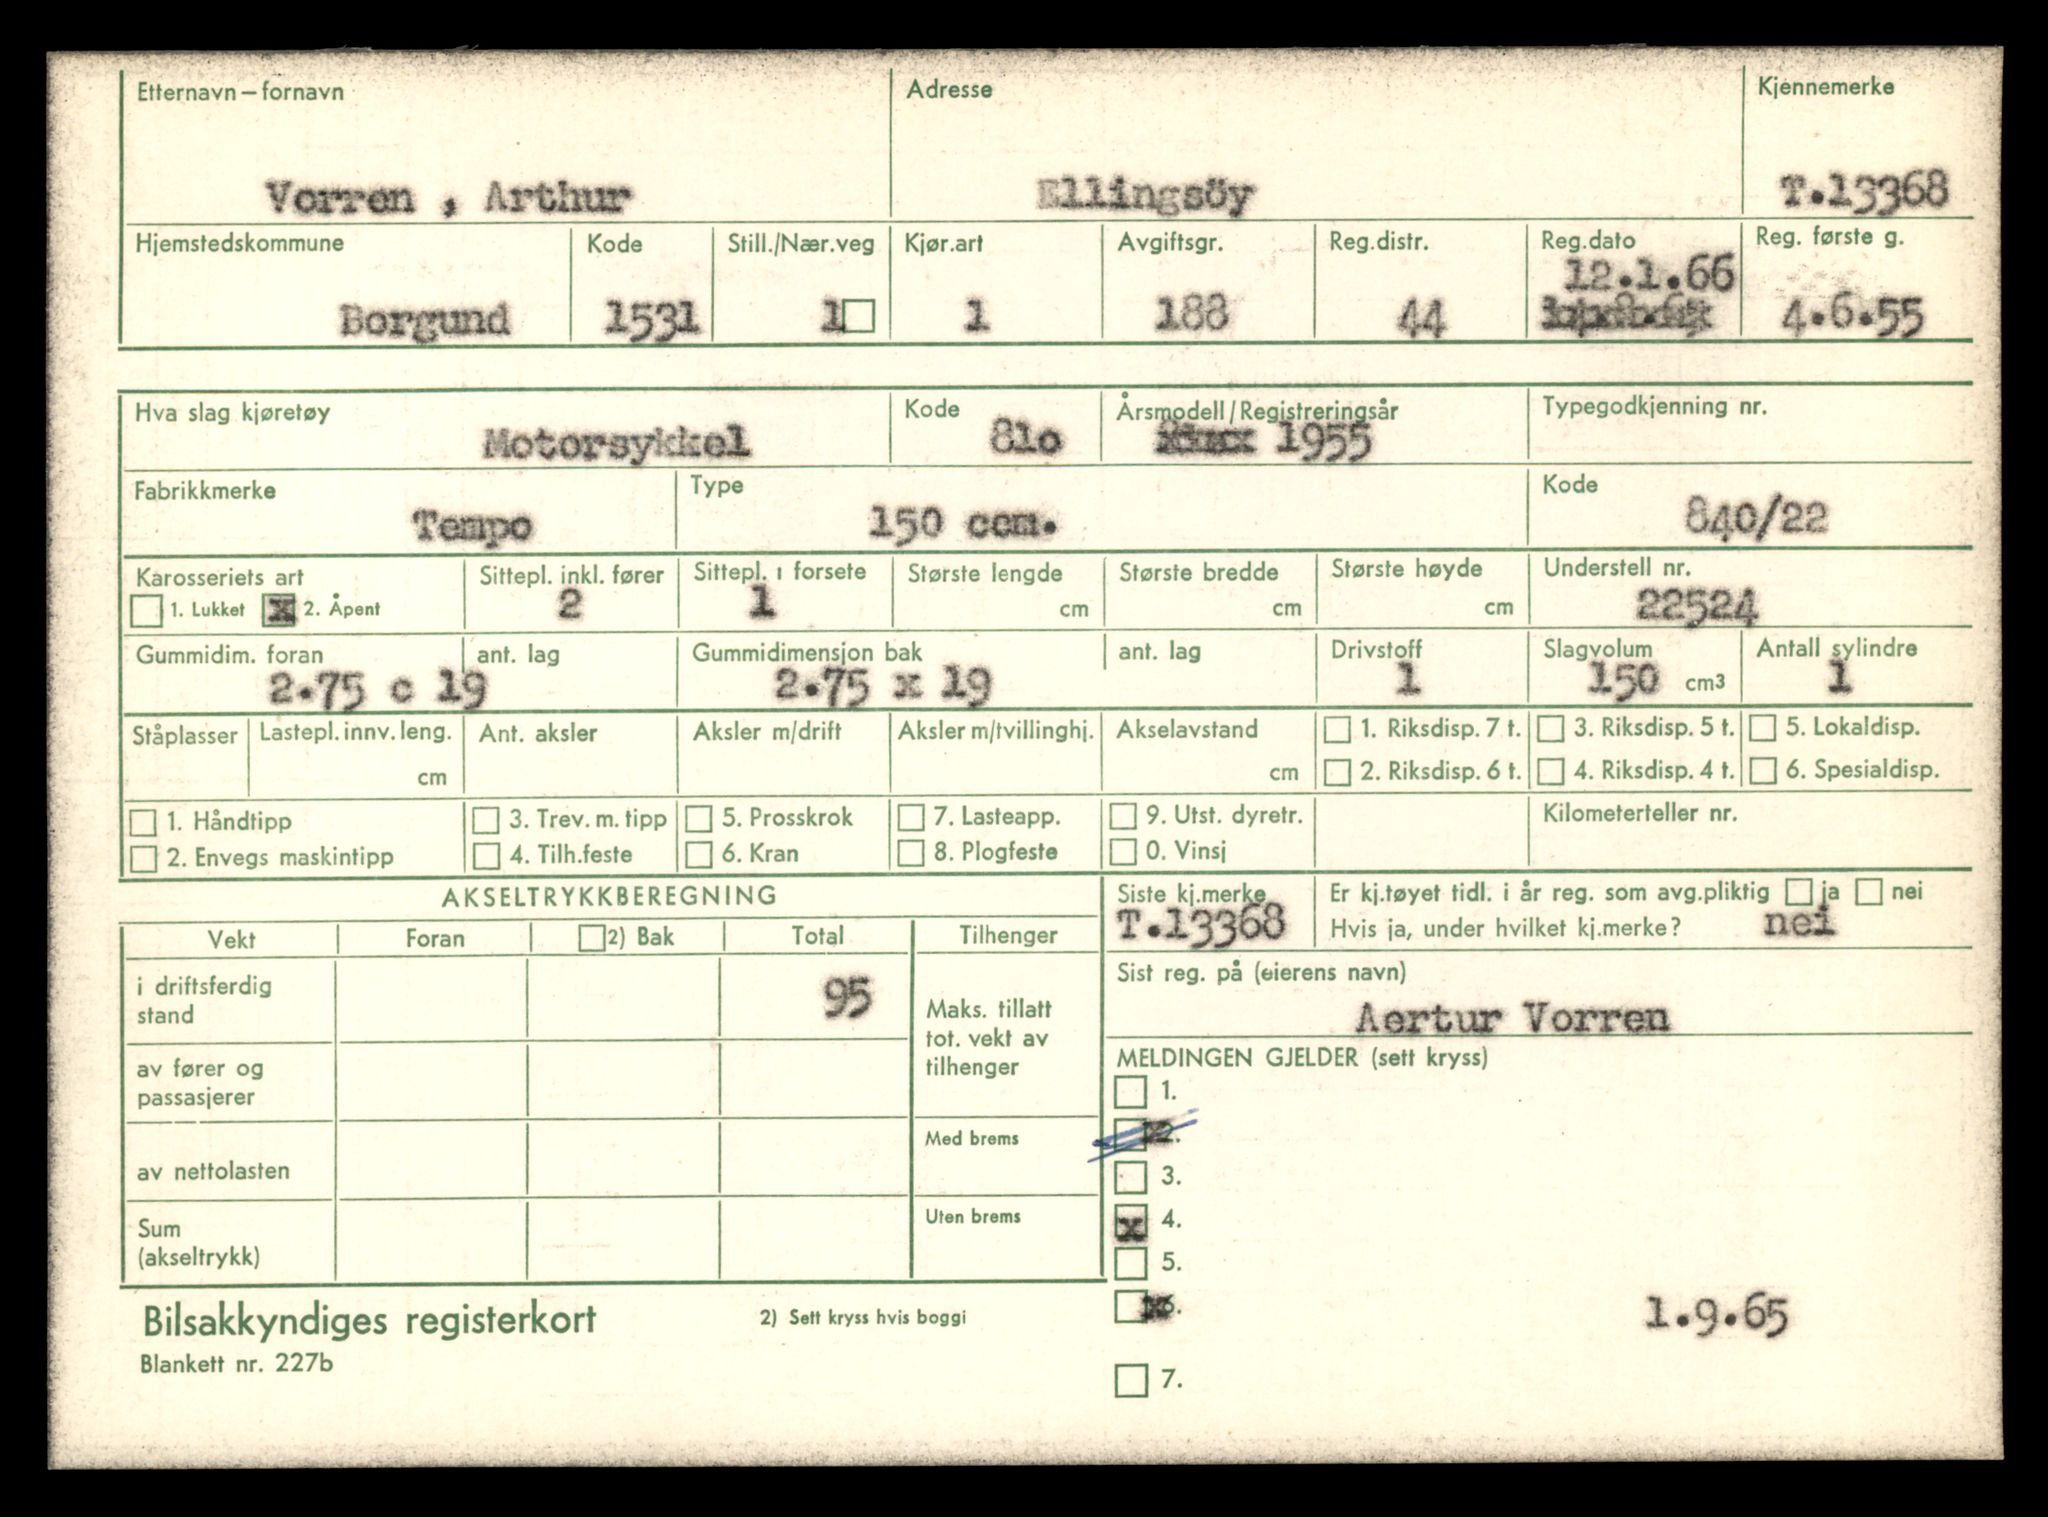 Etternavn – fornavn Adresse Kjennemerke
Vorren , Arthur Ellingsöy T.13368
Hjemstedskommune Kode Still./Nær.veg Kjør.art Avgiftsgr. Reg.distr. Reg.dato Reg. første g.
12.1.66
Borgund 1531 1 1 188 44 4.6.55
Hva slag kjøretøy Kode Årsmodell/Registreringsår Typegodkjenning nr.
Motorsykkel 81o 1955
Fabrikkmerke Type Kode
Tempo 150 ccm. 840/22
Karosseriets art Sittepl. inkl. fører Sittepl. i forsete Største lengde Største bredde Største høyde Understell nr.
1. Lukket x 2. Åpent 2 1 cm cm cm 22524
Gummidim. foran ant. lag Gummidimensjon bak ant. lag Drivstoff Slagvolum Antall sylindre
2.75 c 19 2.75 x 19 1 150 cm3 1
Ståplasser Lastepl. innv. leng. Ant. aksler Aksler m/drift Aksler m/tvillinghj. Akselavstand 1. Riksdisp. 7 t. 3. Riksdisp. 5 t. 5. Lokaldisp.
cm cm 2. Riksdisp. 6 t. 4. Riksdisp. 4 t. 6. Spesialdisp.
1. Håndtipp 3. Trev. m. tipp 5. Prosskrok 7. Lasteapp. 9. Utst. dyretr. Kilometerteller nr.
2. Envegs maskintipp 4. Tilh.feste 6. Kran 8. Plogfeste 0. Vinsj
AKSELTRYKKBEREGNING Siste kj.merke Er kj.tøyet tidl. i år reg. som avg.pliktig ja nei
T.13368 Hvis ja, under hvilket kj.merke? nei
Vekt Foran 2) Bak Total Tilhenger
Sist reg. på (eierens navn)
i driftsferdig stand 95
Maks. tillatt tot. vekt av tilhenger
Aertur Vorren
av fører og passasjerer
MELDINGEN GJELDER (sett kryss)
1.
Med brems
2.
av nettolasten
3.
Uten brems
x 4.
Sum (akseltrykk)
5.
x6.
1.9.65
Bilsakkyndiges registerkort 2) Sett kryss hvis boggi
Blankett nr. 227b
7.